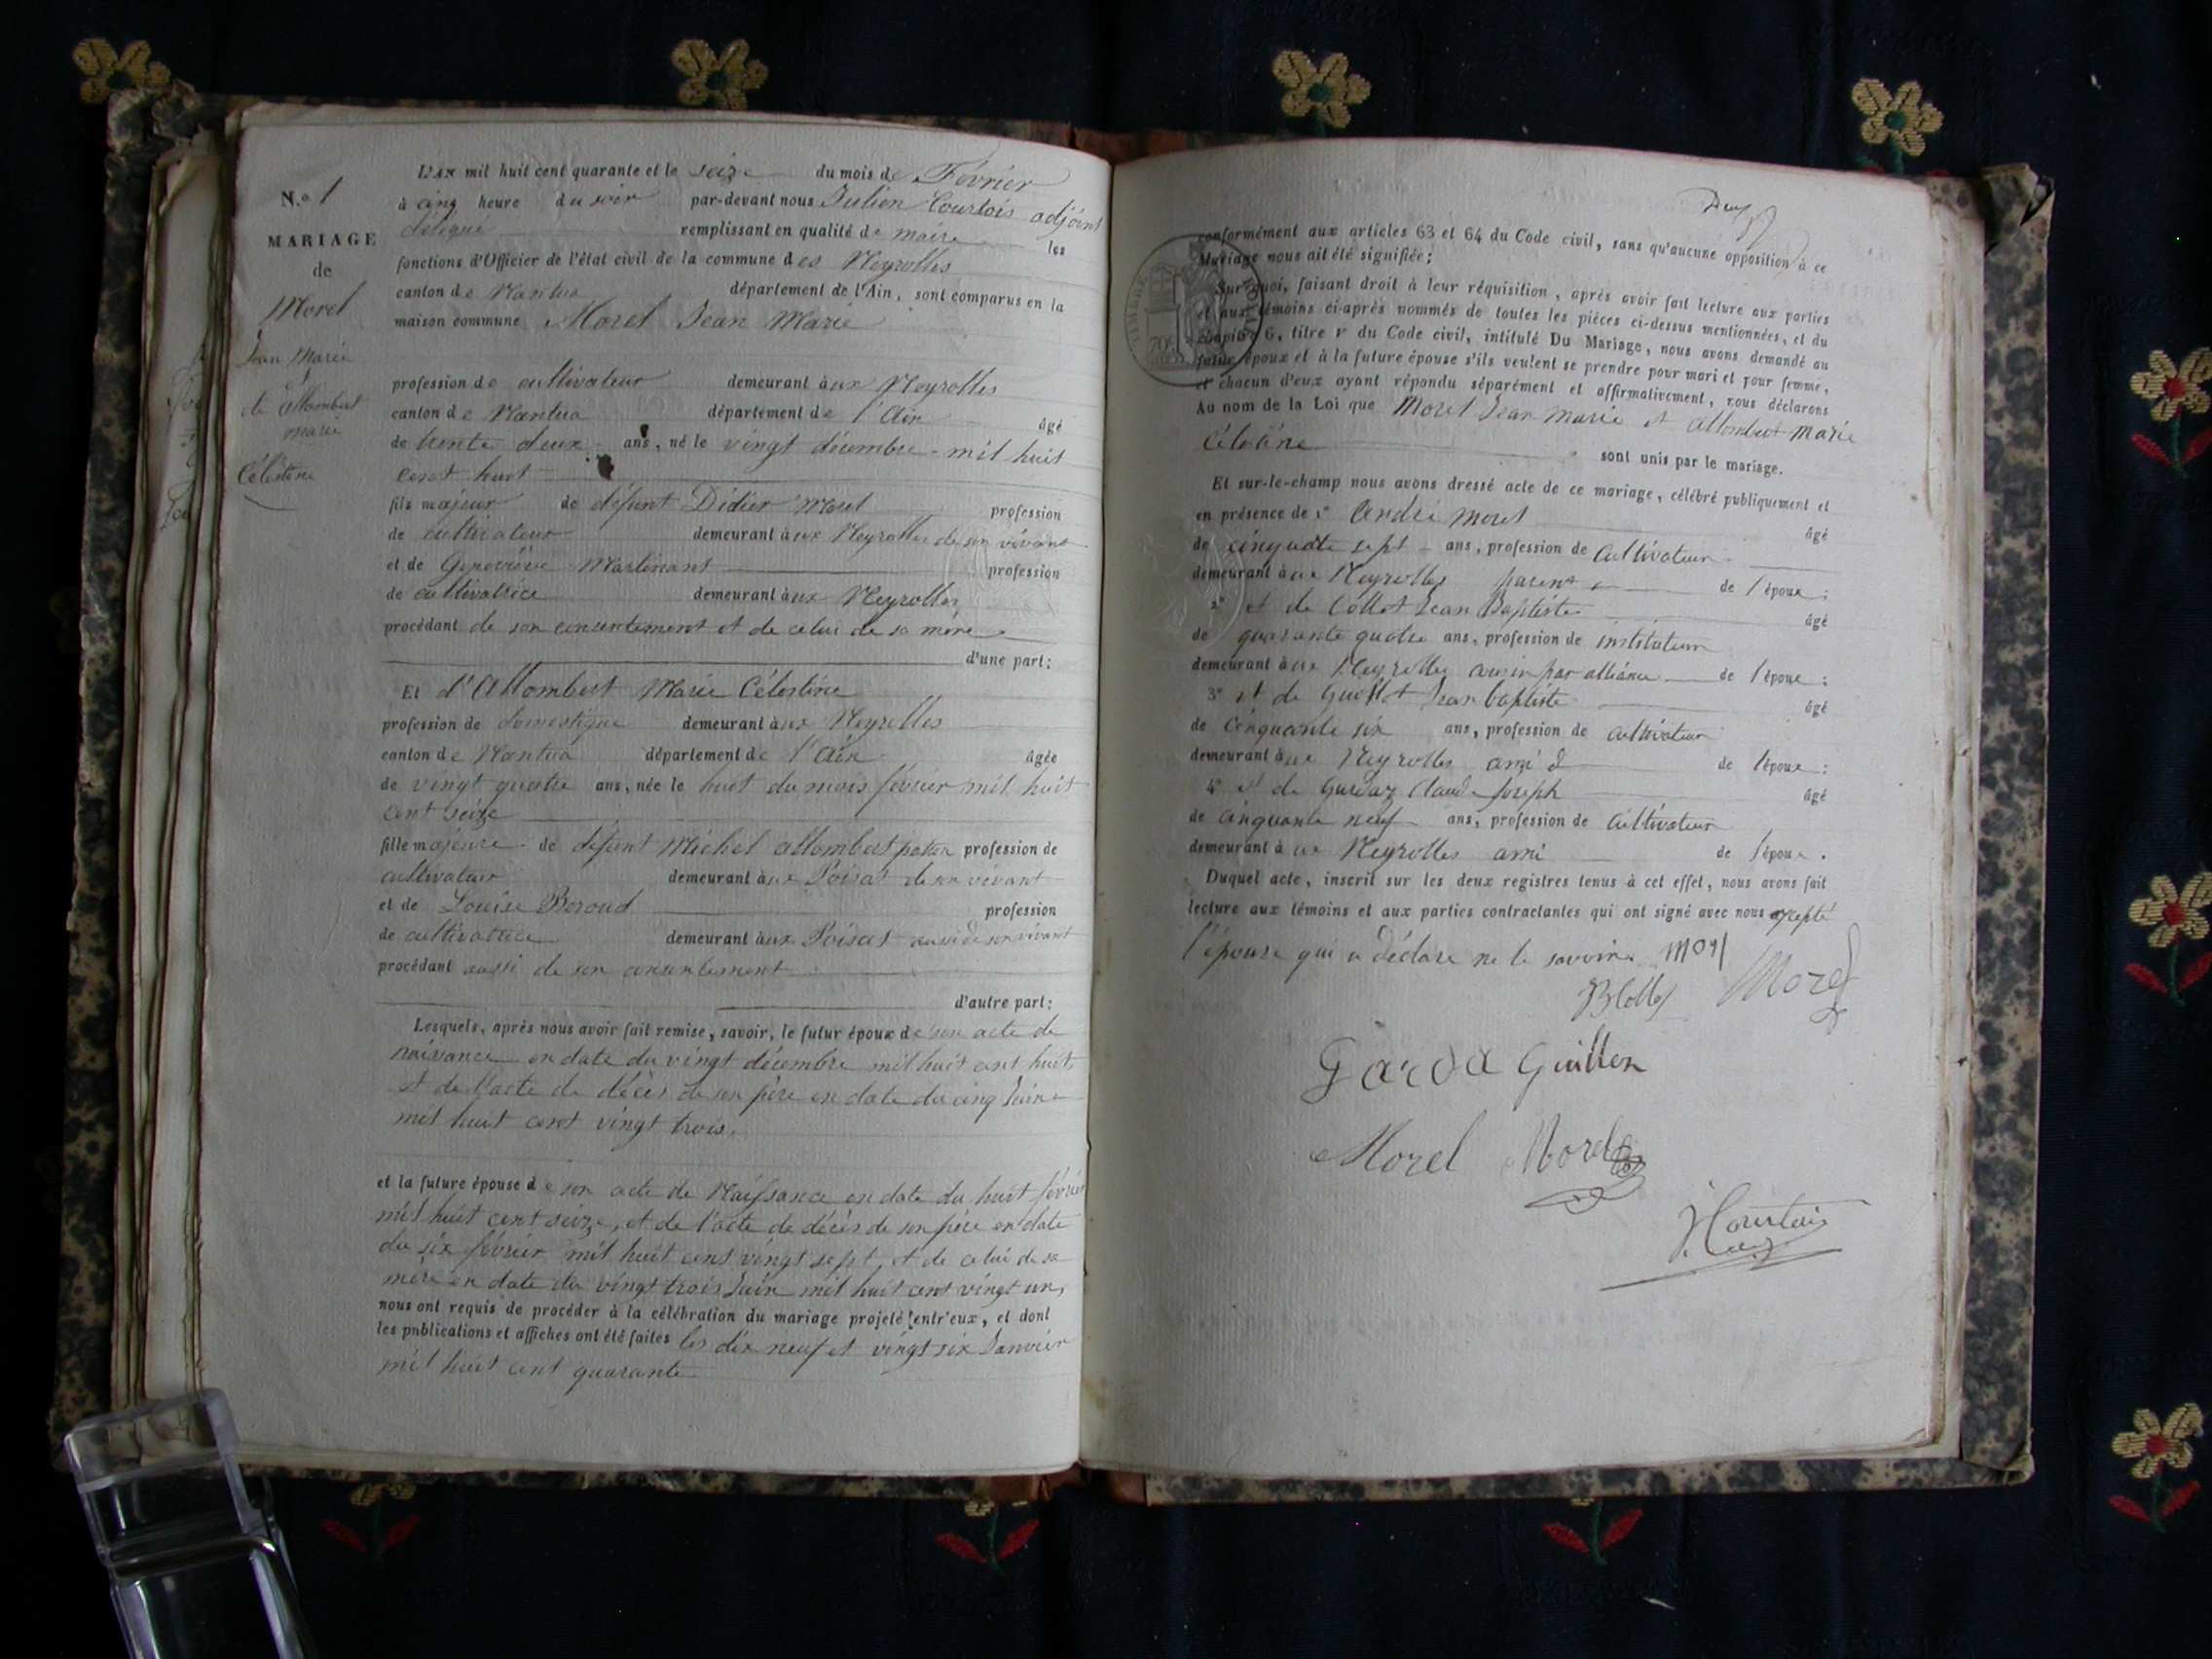 N.º 1
MARIAGE
de
Morel
Jean Marie
et
de Allombert
marie
Célestine
L'AN mil huit cent quarante et le seize du mois de Février
à cinq heure du soir par-devant nous Julien Courtois adjoint
délégué remplissant en qualité de maire les
fonctions d'Officier de l'état civil de la commune des Neyrolles
canton de Nantua département de l'Ain, sont comparus en la
maison commune Morel Jean Marie
profession de cultivateur demeurant aux Neyrolles
canton de Nantua département de l'Ain âgé
de trente deux ans, né le vingt décembre mil huit
cent huit
fils majeur de défunt Didier Morel profession
de cultivateur demeurant aux Neyrolles de son vivant
et de Geneviève Martinant profession
de cultivatrice demeurant aux Neyrolles
procédant de son consentement et de celui de sa mère
d'une part;
Et d'Allombert Marie Célestine
profession de domestique demeurant aux Neyrolles
canton de Nantua département de l'Ain âgée
de vingt quatre ans, née le huit du mois février mil huit
cent seize
fille majeure de défunt Michel allombert profession de
cultivateur demeurant aux Poisat de son vivant
et de Louise Beroud profession
de cultivatrice demeurant aux Poisat aussi de son vivant
procédant aussi de son consentement
d'autre part;
Lesquels, après nous avoir fait remise, savoir, le futur époux de son acte de
naissance en date du vingt décembre mil huit cent huit
et de l'acte de décès de son père en date du cinq Juin
mil huit cent vingt trois.
et la future épouse de son acte de Naissance en date du huit février
mil huit cent seize, et de l'acte de décès de son père en date
du six février mil huit cent vingt sept, et de celui de sa
mère en date du vingt trois Juin mil huit cent vingt un,
nous ont requis de procéder à la célébration du mariage projeté entr'eux, et dont
les publications et affiches ont été faites les dix neuf et vingt six Janvier
mil huit cent quarante
conformément aux articles 63 et 64 du Code civil, sans qu'aucune opposition à ce
Mariage nous ait été signifiée;
Sur quoi, faisant droit à leur réquisition, après avoir fait lecture aux parties
et aux témoins ci-après nommés de toutes les pièces ci-dessus mentionnées, et du
chapitre 6, titre v du Code civil, intitulé Du Mariage, nous avons demandé au
futur époux et à la future épouse s'ils veulent se prendre pour mari et pour femme,
et chacun d'eux ayant répondu séparément et affirmativement, nous déclarons
Au nom de la Loi que Morel Jean marie et Allombert Marie
Célestine sont unis par le mariage.
Et sur-le-champ nous avons dressé acte de ce mariage, célébré publiquement et
en présence de 1º André Morel âgé
de cinquate sept ans, profession de cultivateur
demeurant aux Neyrolles parent de l'époux;
2º et de Collet Jean Baptiste âgé
de quarante quatre ans, profession de instituteur
demeurant aux Neyrolles cousin par alliance de l'époux;
3º et de Jean baptiste âgé
de Cinquante six ans, profession de cultivateur
demeurant aux Neyrolles ami de l'époux;
4º et de Claude Joseph âgé
de cinquante neuf ans, profession de cultivateur
demeurant aux Neyrolles ami de l'époux.
Duquel acte, inscrit sur les deux registres tenus à cet effet, nous avons fait
lecture aux témoins et aux parties contractantes qui ont signé avec nous excepté
l'épouse qui a déclaré ne le savoir.
Morel
Morel Morel
Courtois